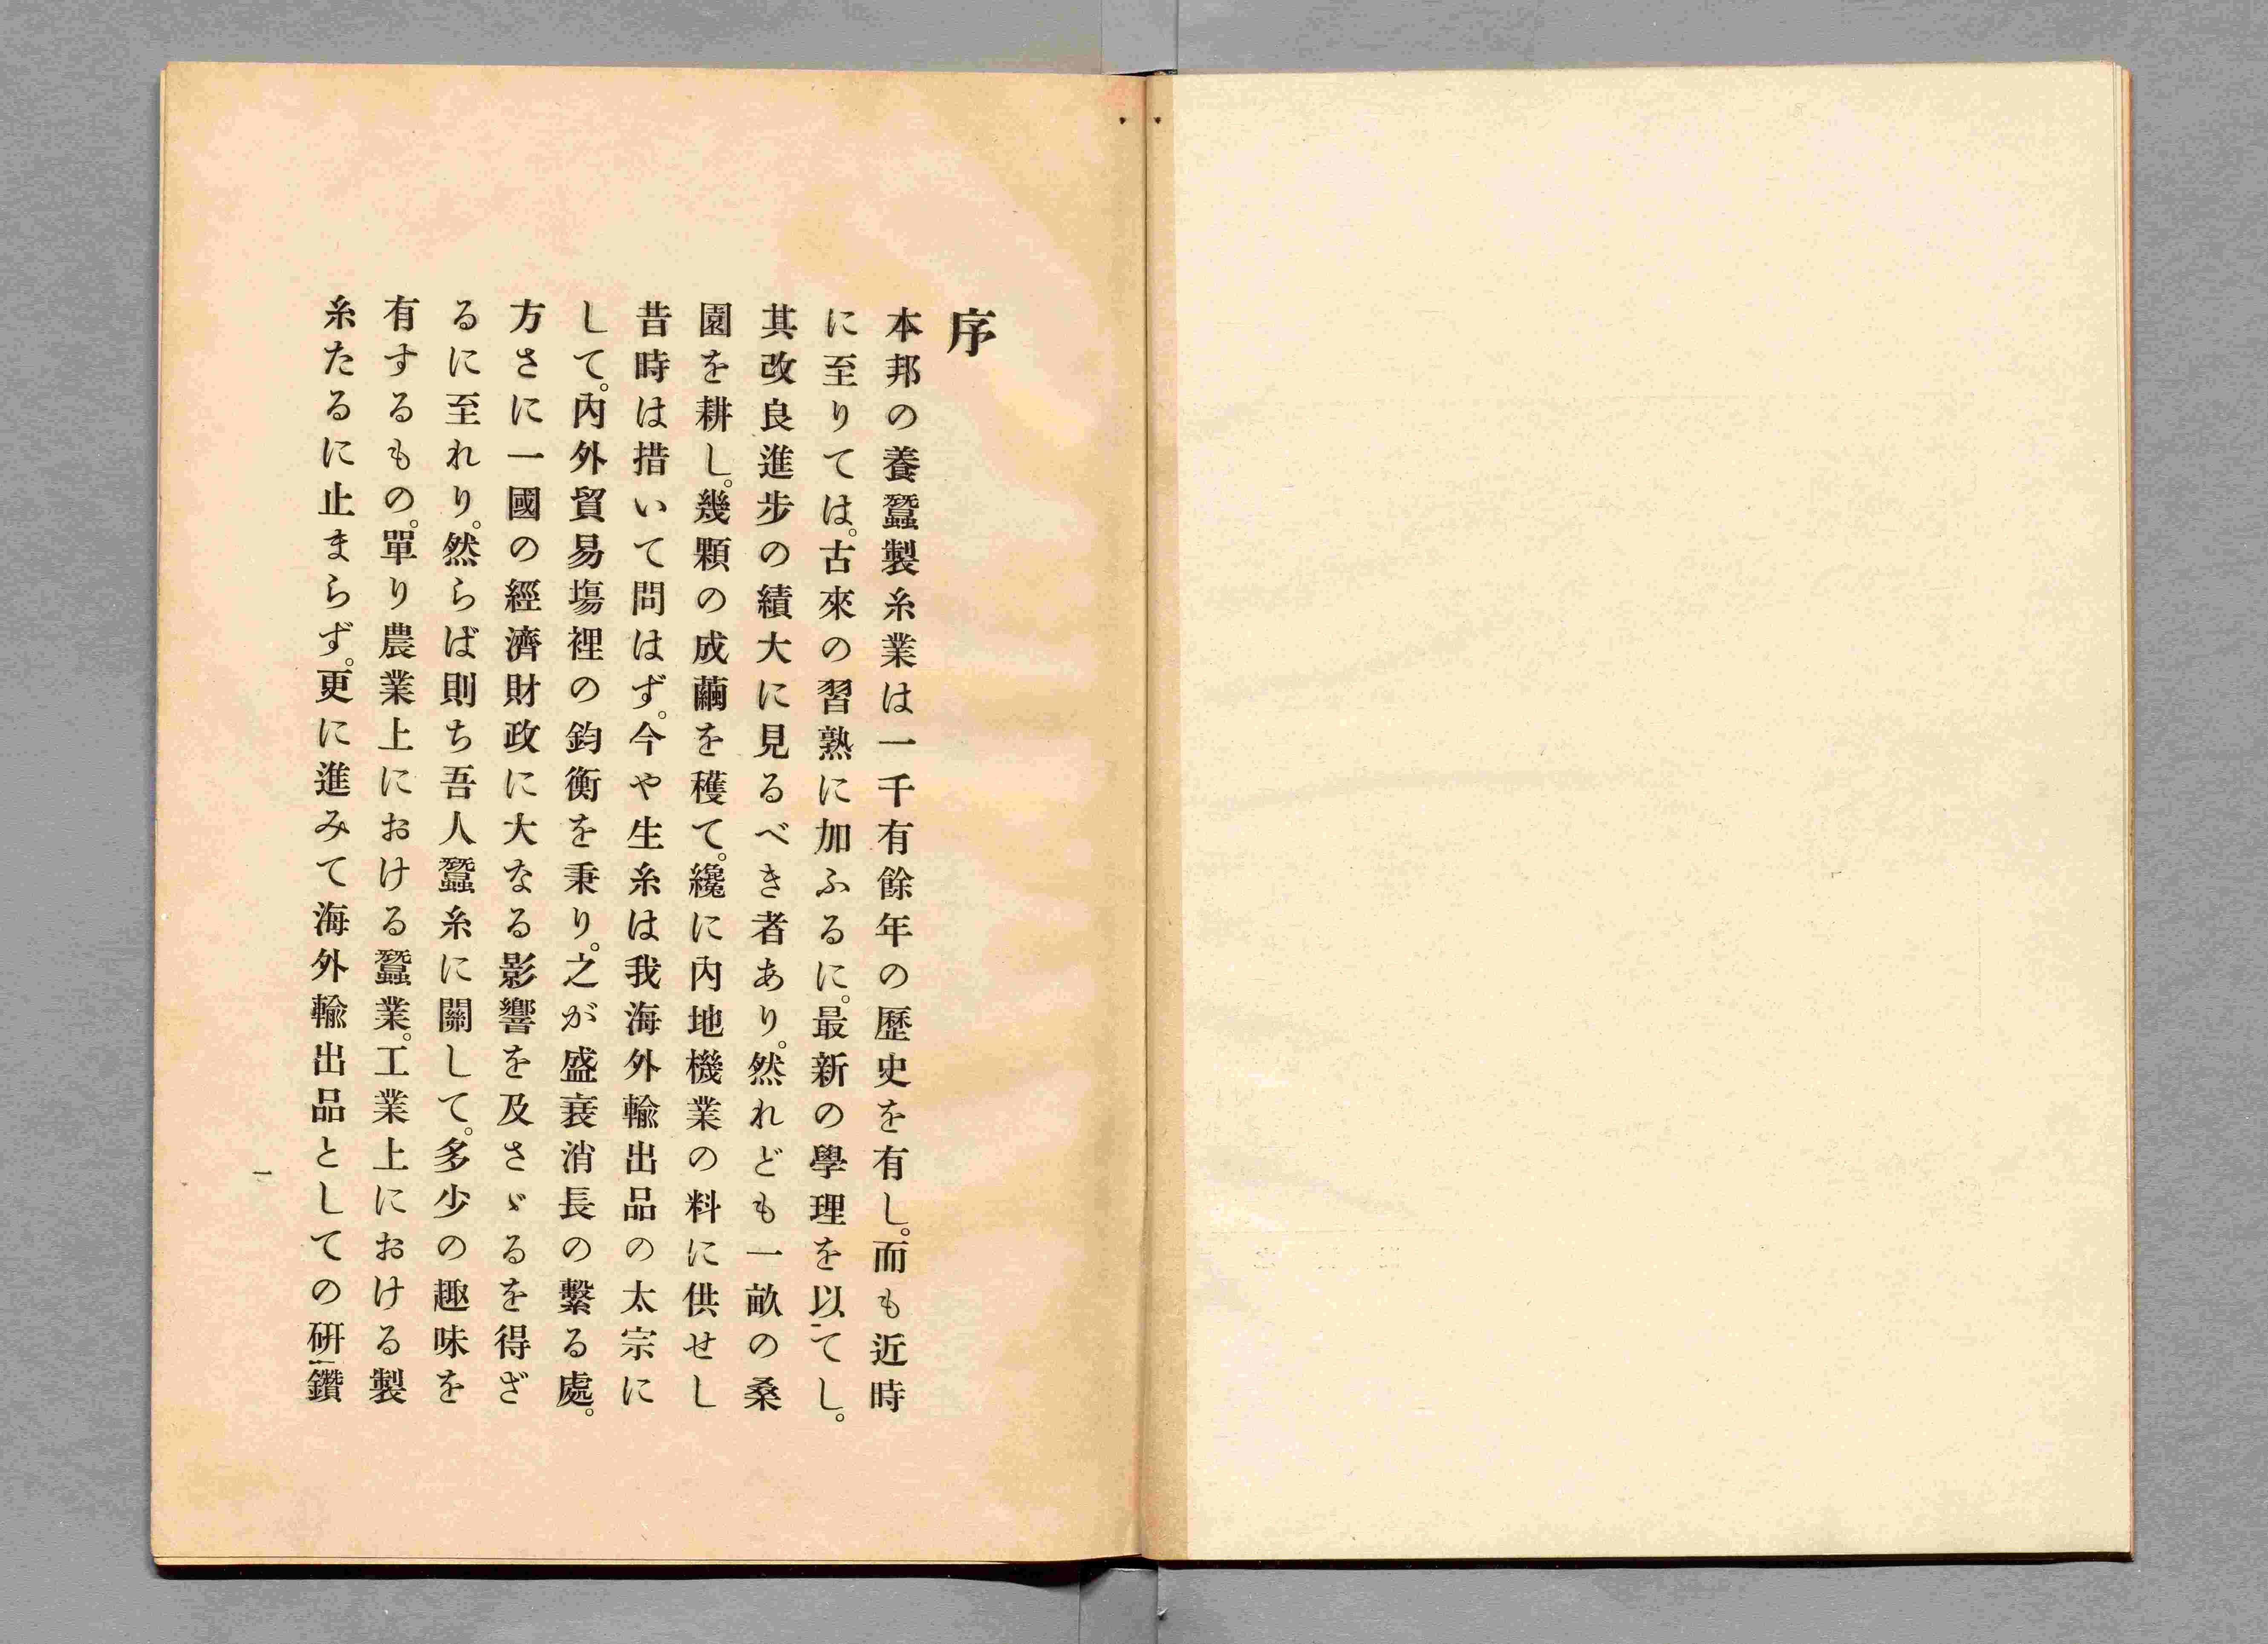 序
本邦の養蠶製糸業は一千有餘年の歷史を有し。而も近時
に至りては。古來の習熟に加ふるに。最新の學理を以てし。
其改良進步の績大に見るべき者あり。然れども一畝の桑
園を耕し。幾顆の成繭を穫て。纔に內地機業の料に供せし
昔時は措いて問はず。今や生糸は我海外輸出品の太宗に
して。內外貿易塲裡の鈞衡を秉り。之が盛衰消長の繫る處。
方さに一國の經濟財政に大なる影響を及さゞるを得ざ
るに至れり。然らば則ち吾人蠶糸に關して。多少の趣味を
有するもの。單り農業上における蠶業。工業上における製
糸たるに止まらず。更に進みて海外輸出品としての硏鑽
一